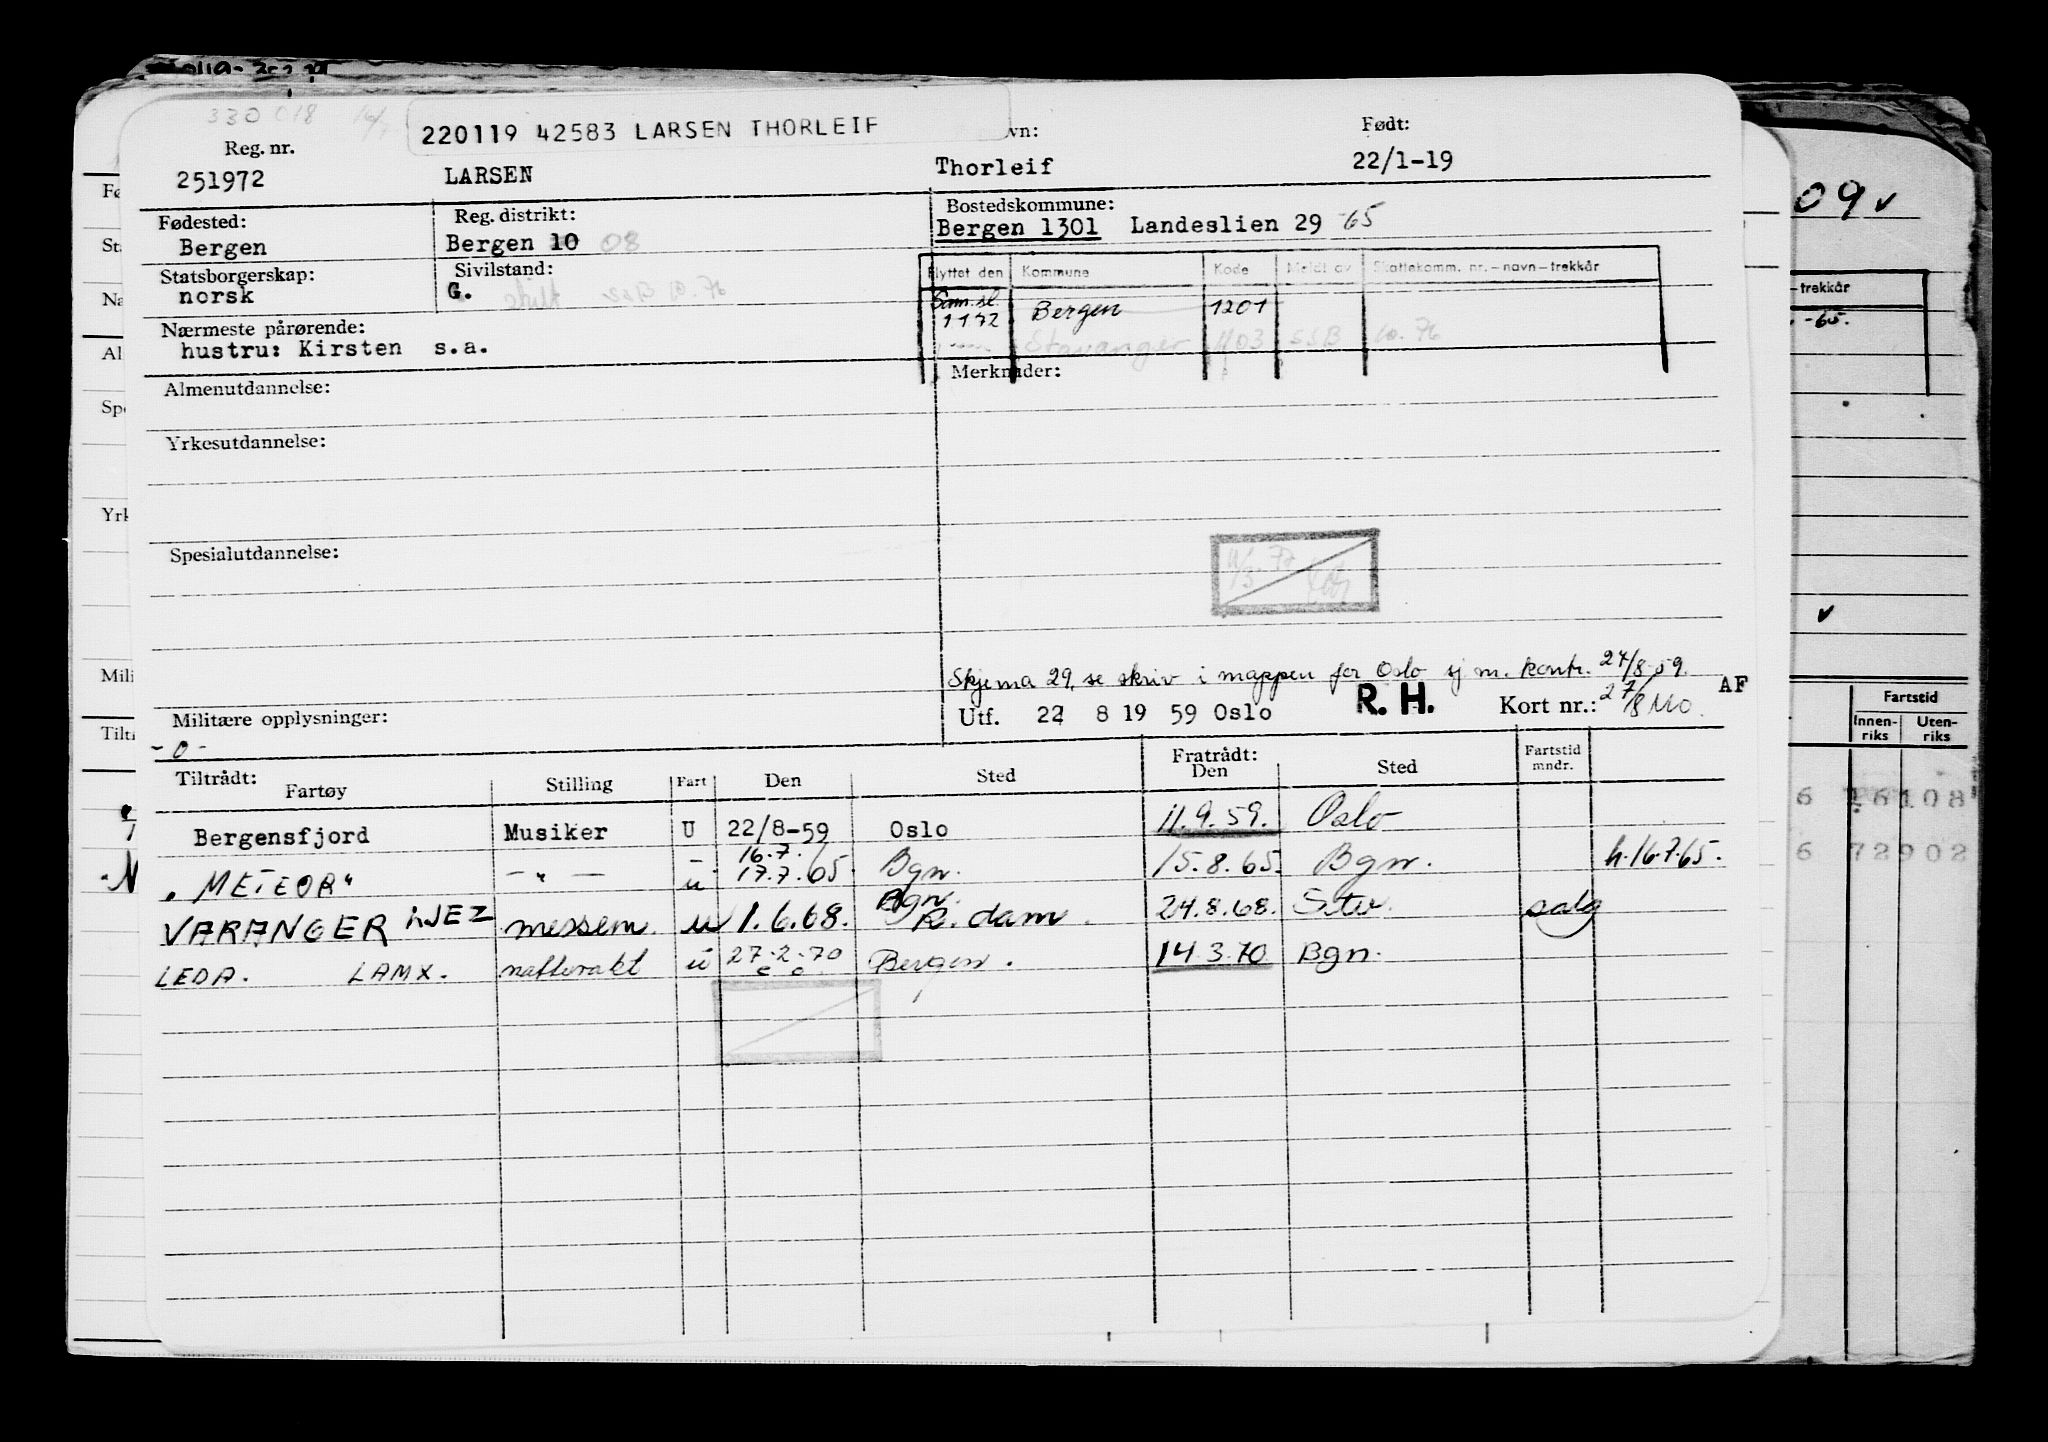 330 018
220119 42583 LARSEN THORLEIF
Reg. nr. vn: Født:
251972 LARSEN Thorleif 22/1-19
Fødested: Reg. distrikt: Bostedskommune:
Bergen Bergen 10 08 Bergen 1301 Landeslien 29 -65
Statsborgerskap: Sivilstand: Flyttet den Kommune Kode Meldt av Skattekomm. nr.-navn-trekkår
norsk G. skilt SSB 10.76 Sam.sl. 1 1 72 Bergen 1201
Nærmeste pårørende: Stavanger 1103 SSB 10.76
hustru: Kirsten s.a.
Almenutdannelse: Merknader:
Yrkesutdannelse:
Spesialutdannelse:
Skjema 29, se skriv i mappen for Oslo sj m. kontr. 24/8-59.
Militære opplysninger: Utf. 22 8 19 59 Oslo R. H. Kort nr.: 27/8 MO AF
-0-
Tiltrådt: Fratrådt: Fartstid
Fartøy Stilling Fart Den Sted Den Sted mndr.
Bergensfjord Musiker U 22/8-59 Oslo 11.9.59. Oslo
"METEOR" - " - u 16.7. 17.7.65 Bgn. 15.8.65. Bgn. h.16.7.65.
VARANGER LJEZ messem. u 1.6.68. Bgn. R.dam. 24.8.68. salg
LEDA. LAMX. u 27.2.70 Bergen. 14.3.70 Bgn.
09
-trekkår
-65.
Fartstid
Innen-riks Uten-riks
6 16108
6 72902